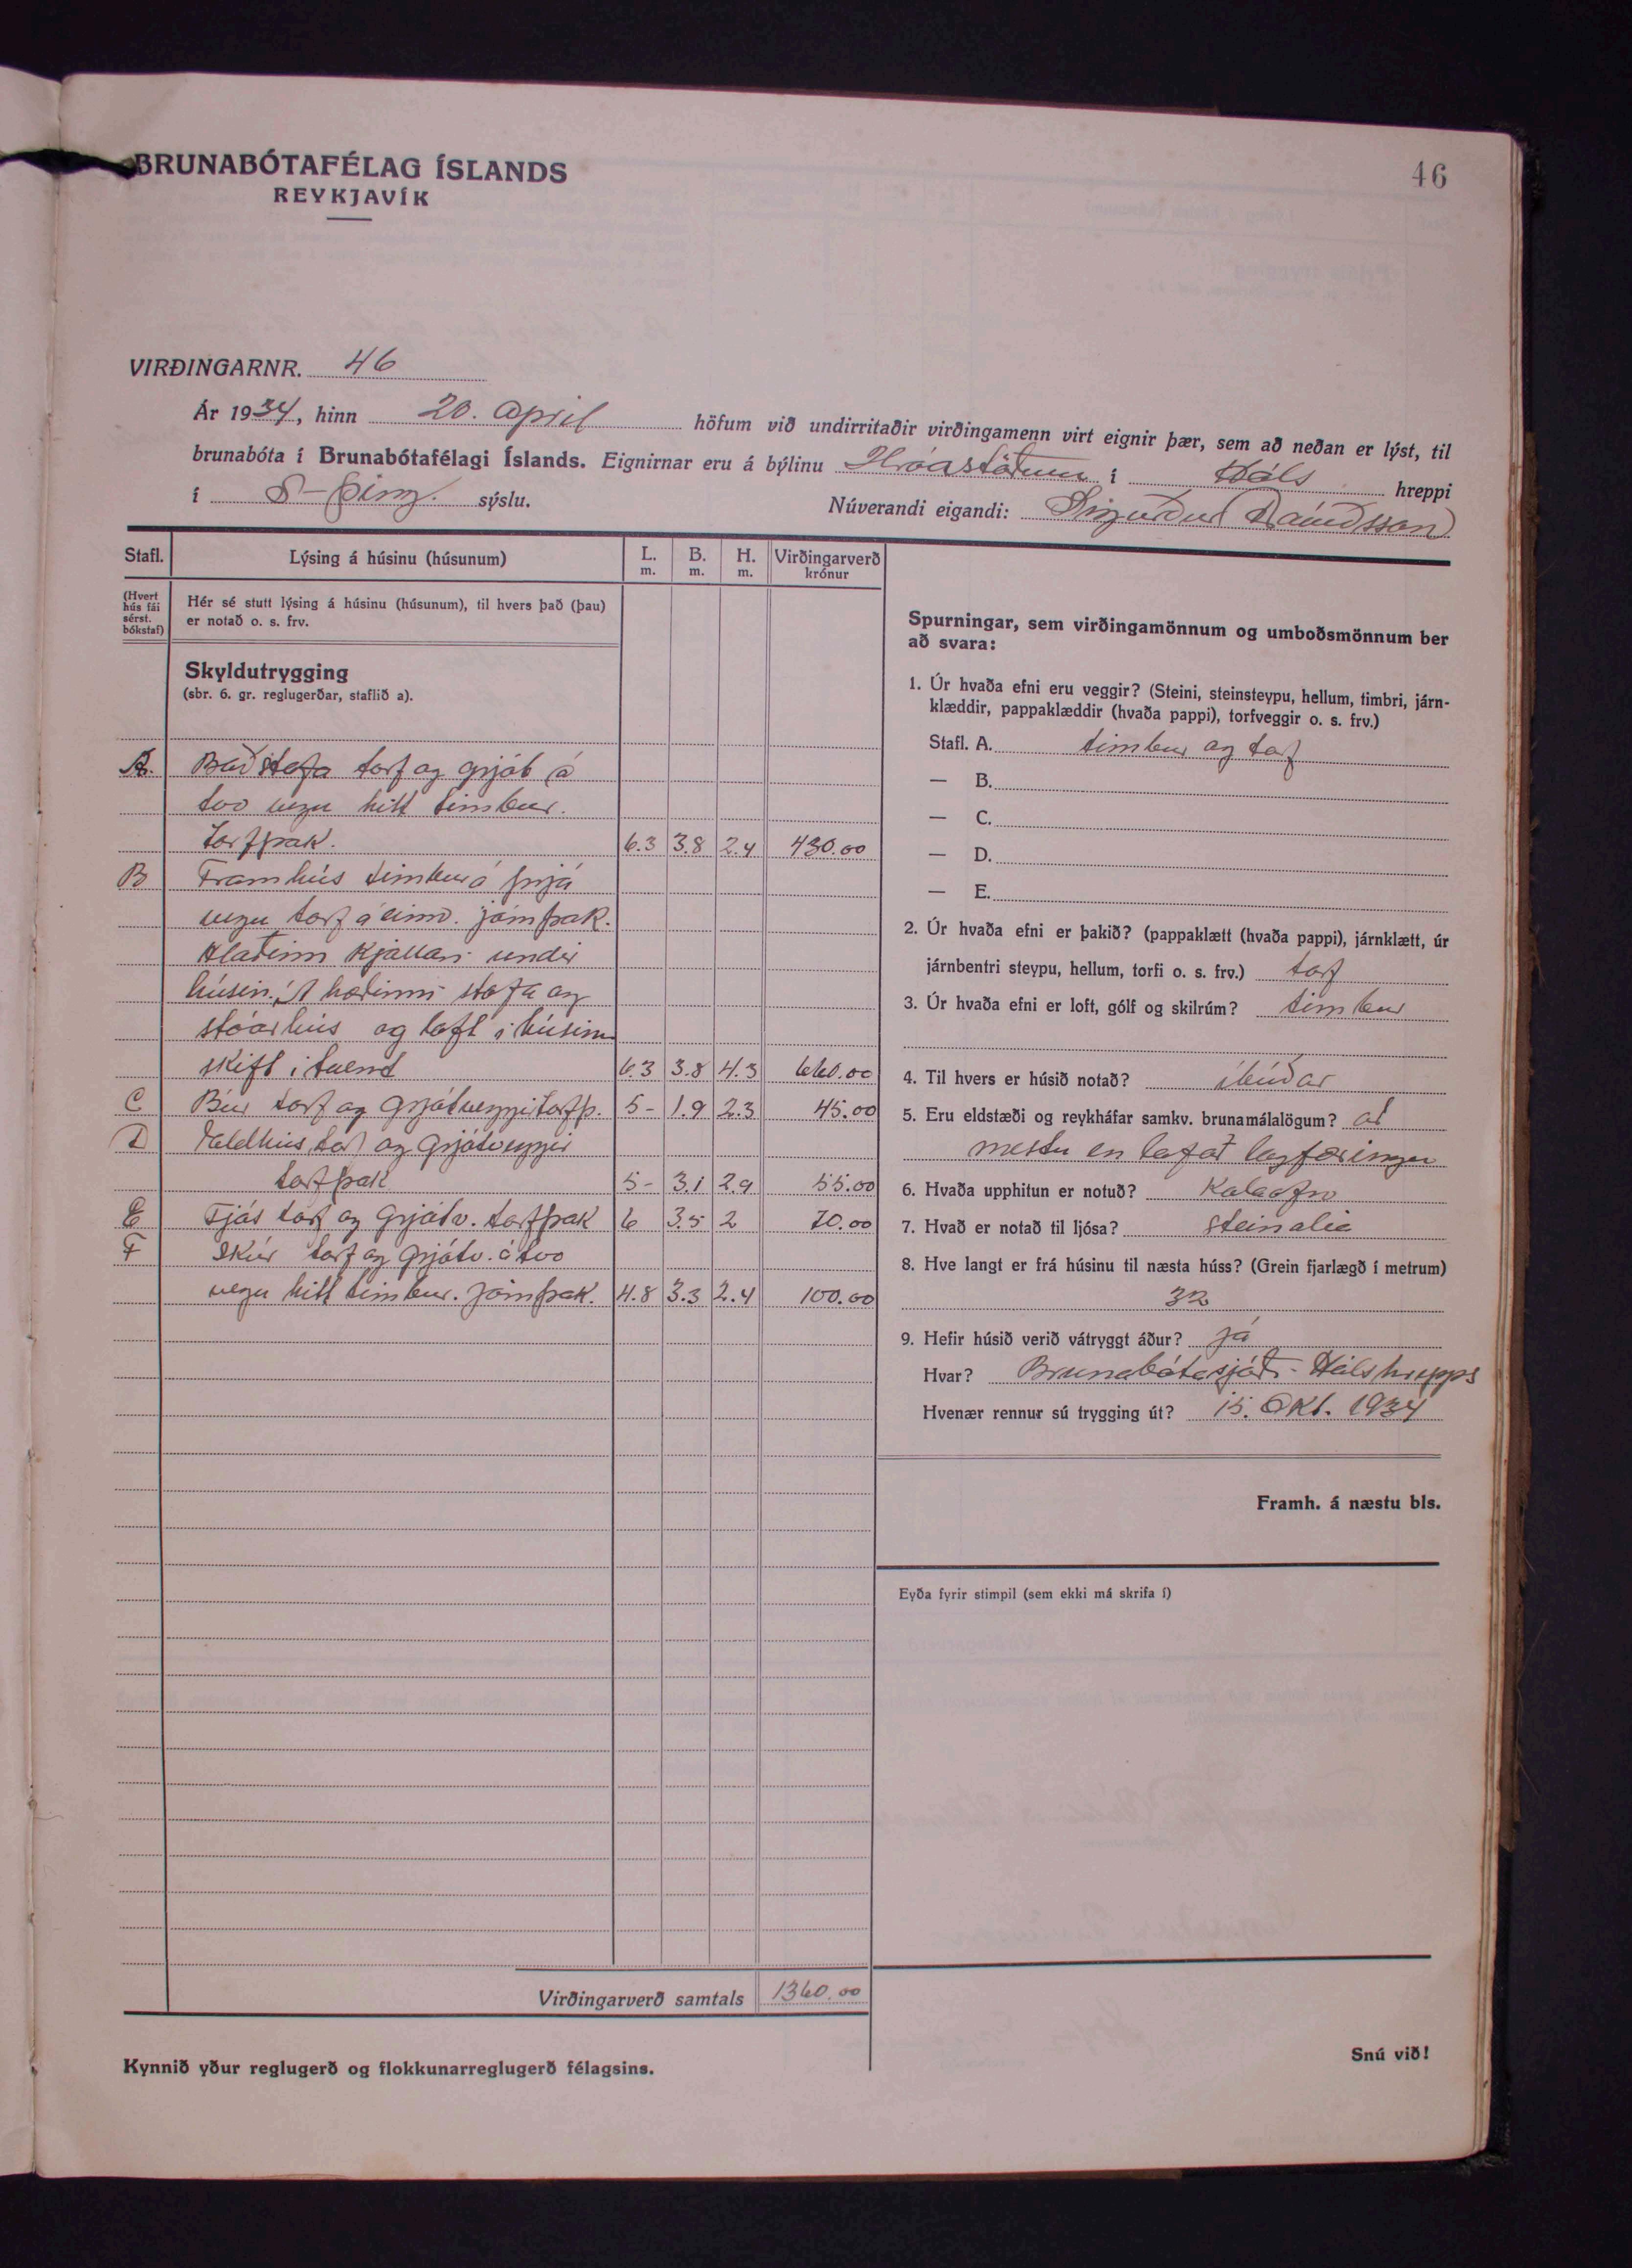 BRUNABÓTAFÉLAG ÍSLANDS
REYKJAVÍK
46
VIRÐINGARNR. 46
Ár 1934, hinn 20. april höfum við undirritaðir virðingamenn virt eignir þær, sem að neðan er lýst, til
brunabóta í Brunabótafélagi Íslands. Eignirnar eru á býlinu Hróastöðum í Háls hreppi
í S-Þing. sýslu. Núverandi eigandi: Sigurður Davíðsson
Stafl. Lýsing á húsinu (húsunum) L. m. B. m. H. m. Virðingarverð krónur
(Hvert hús fái sérst. bókstaf)
Hér sé stutt lýsing á húsinu (húsunum), til hvers það (þau)
er notað o. s. frv.
Skyldutrygging
(sbr. 6. gr. reglugerðar, staflið a).
A. Baðstofa torf og grjót á
tvo vegu hitt timbur.
Torfþak. 6.3 3.8 2.4 430.00
B Framhús timbur á þrjá
vegu torf á einn. járnþak.
Hlaðinn kjallari undir
húsin. Á hæðinni stofa og
stóarhús og loft í húsinu
skift í tvent 6.3 3.8 4.3 660.00
C Búr torf og grjótveggir torfþ. 5- 1.9 2.3 45.00
D Eldhús torf og grjótveggir
torfþak 5- 3.1 2.9 55.00
E Fjós torf og grjótv. torfþak 6 3.5 2 70.00
F Skúr torf og grjótv. á tvo
vegu hitt timbur. Járnþak. 4.8 3.3 2.4 100.00
Virðingarverð samtals 1360.00
Kynnið yður reglugerð og flokkunarreglugerð félagsins.
Spurningar, sem virðingamönnum og umboðsmönnum ber
að svara:
1. Úr hvaða efni eru veggir? (Steini, steinsteypu, hellum, timbri, járn-
klæddir, pappaklæddir (hvaða pappi), torfveggir o. s. frv.)
Stafl. A. timbur og torf
— B.
— C.
— D.
— E.
2. Úr hvaða efni er þakið? (pappaklætt (hvaða pappi), járnklætt, úr
járnbentri steypu, hellum, torfi o. s. frv.) torf
3. Úr hvaða efni er loft, gólf og skilrúm? timbur
4. Til hvers er húsið notað? íbúðar
5. Eru eldstæði og reykháfar samkv. brunamálalögum? að
mestu en lofað lagfæringu
6. Hvaða upphitun er notuð? Kolaofn
7. Hvað er notað til ljósa? steinolia
8. Hve langt er frá húsinu til næsta húss? (Grein fjarlægð í metrum)
32
9. Hefir húsið verið vátryggt áður? já
Hvar? Brunabótasjóði Hálshrepps
Hvenær rennur sú trygging út? 15. Okt. 1934
Framh. á næstu bls.
Eyða fyrir stimpil (sem ekki má skrifa í)
Snú við!